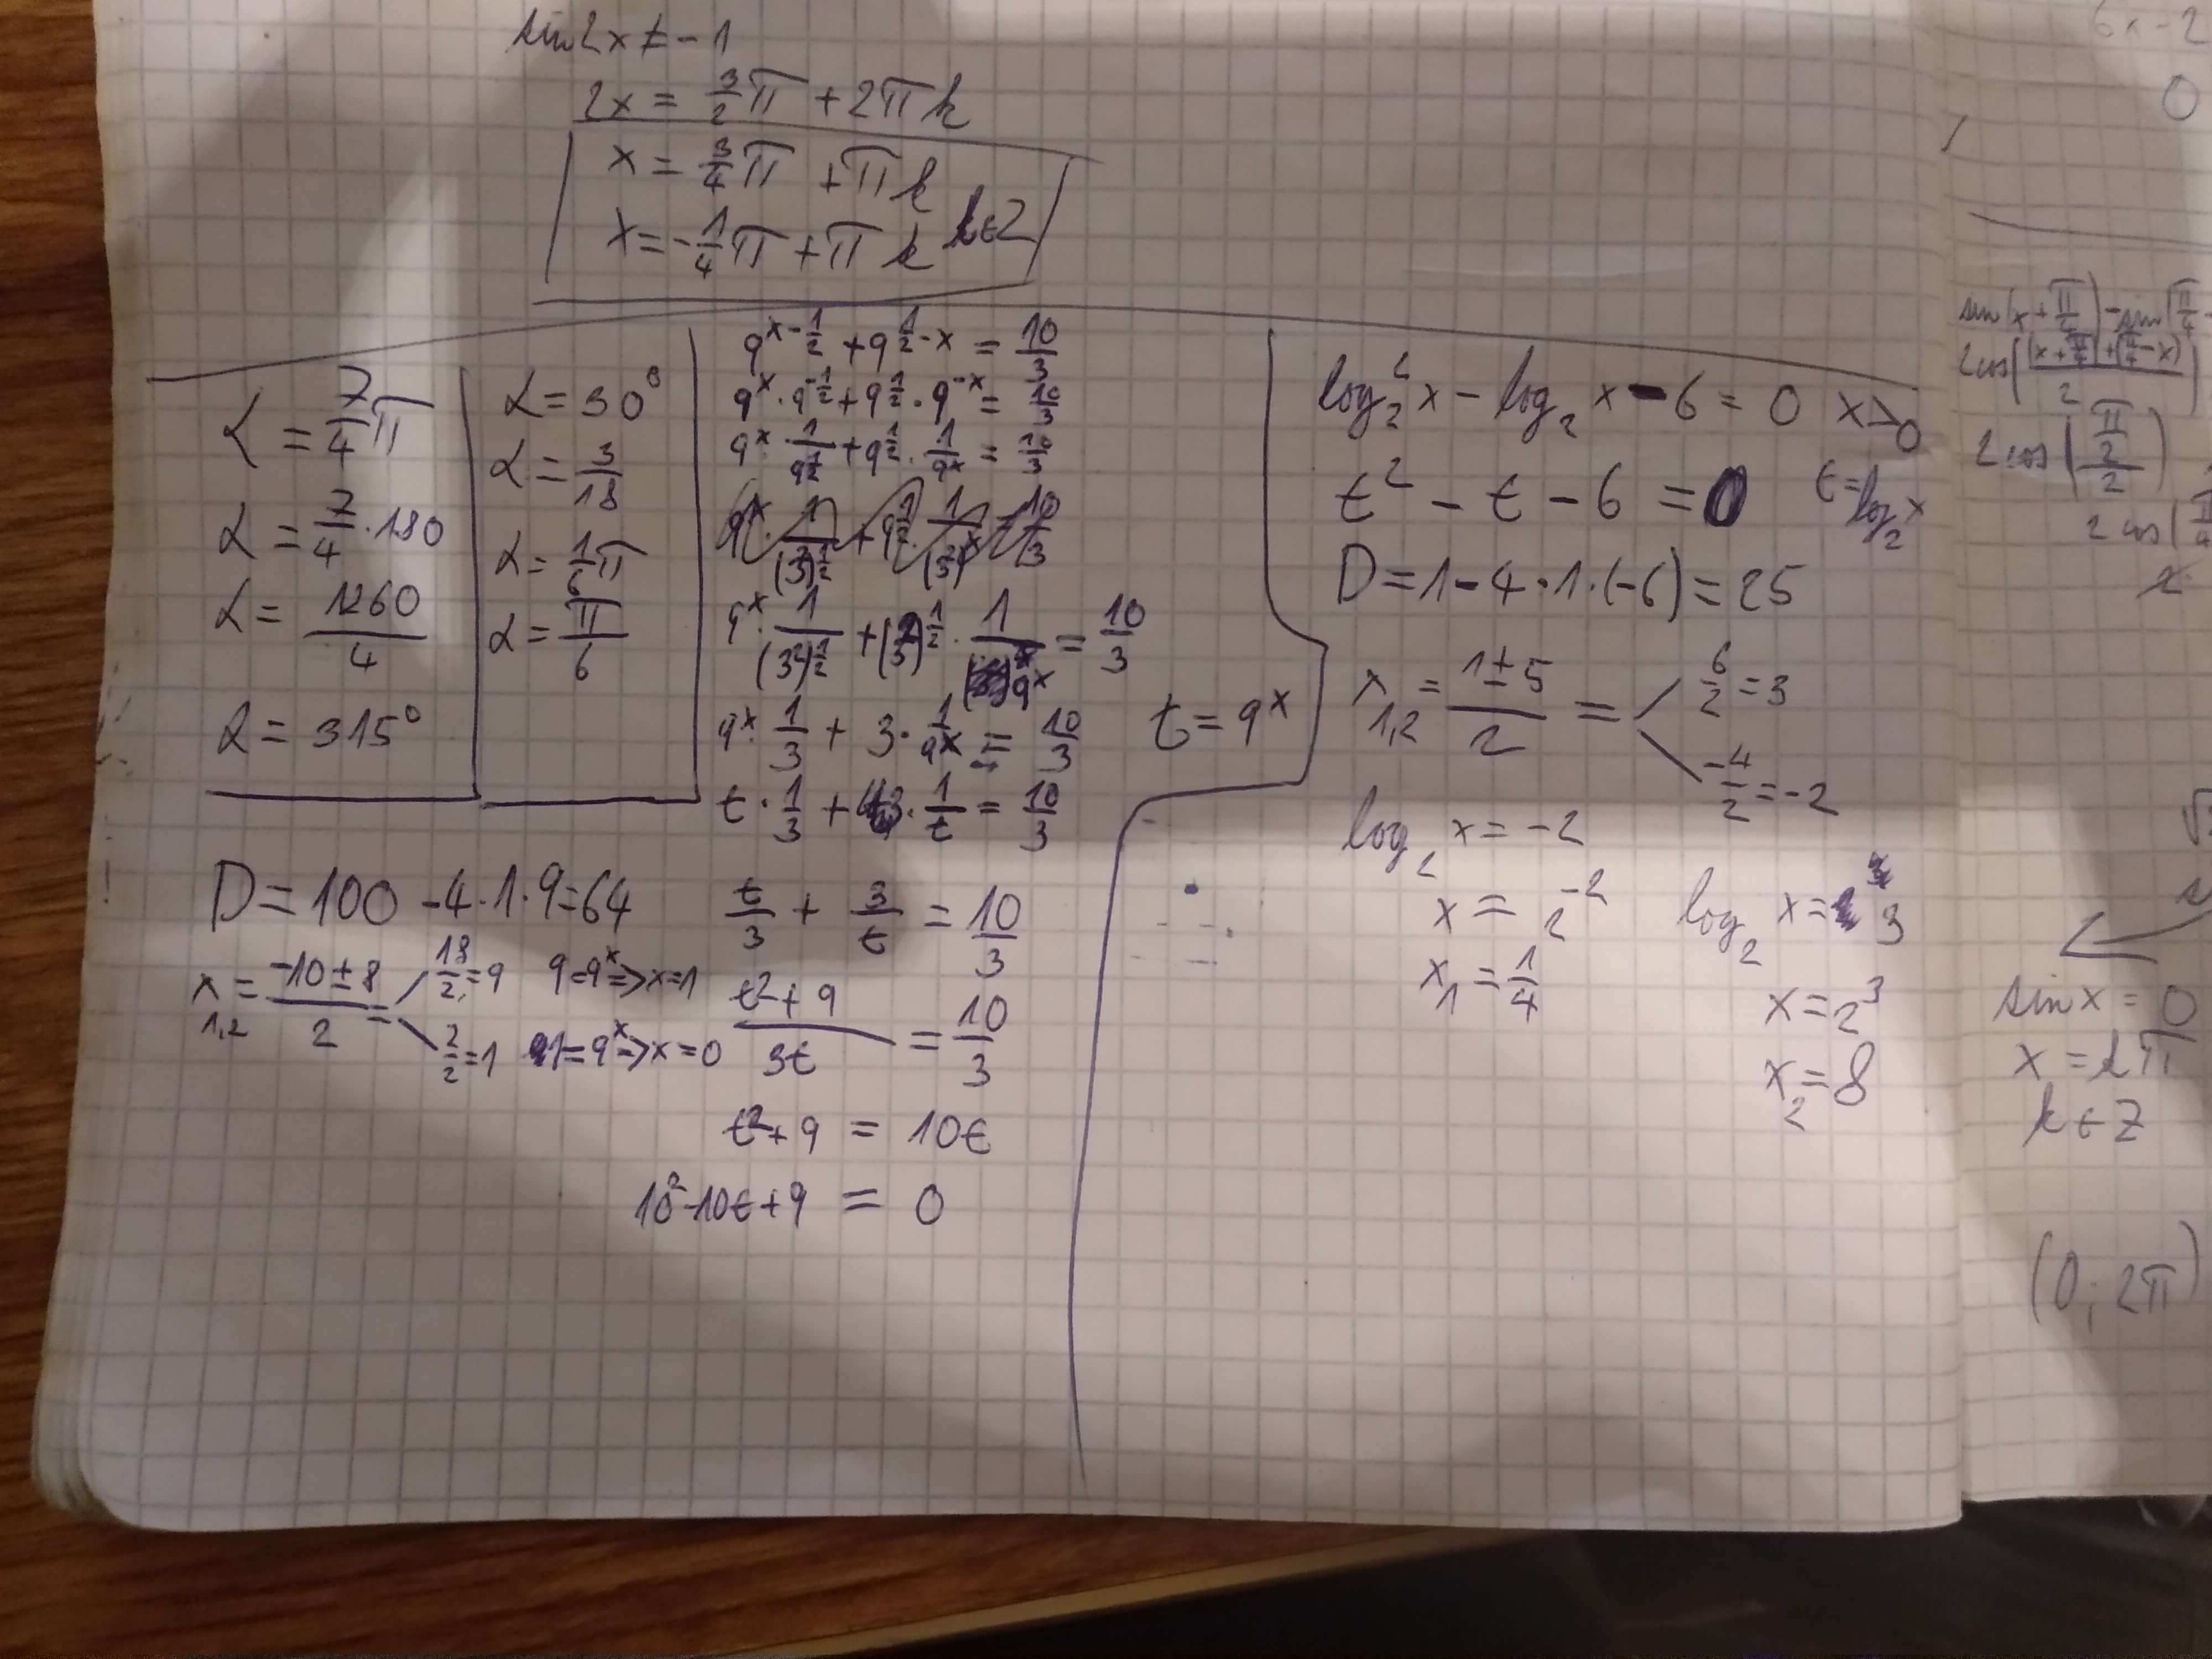 sin2x ≠ -1
2x = 3/2 π + 2πk
x = 3/4 π + πk
x = -1/4 π + πk k∈Z
α = 7/4 π
α = 7/4 · 180
α = 1260/4
α = 315°
α = 30°
α = 3/18
α = 1/6 π
α = π/6
9^(x-1/2) + 9^(1/2-x) = 10/3
9^x · 9^(-1/2) + 9^(1/2) · 9^(-x) = 10/3
9^x · 1/9^(1/2) + 9^(1/2) · 1/9^x = 10/3
9^x · 1/(3²)^(1/2) + (3²)^(1/2) · 1/9^x = 10/3
9^x · 1/3 + 3 · 1/9^x = 10/3 t = 9^x
t · 1/3 + 3 · 1/t = 10/3
t/3 + 3/t = 10/3
(t²+9)/3t = 10/3
t²+9 = 10t
10²-10t+9 = 0
D = 100 -4·1·9=64
x1,2 = (-10±8)/2 = 18/2=9 9=9^x => x=1
2/2=1 1=9^x => x=0
log₂²x - log₂x - 6 = 0 x>0
t² - t - 6 = 0 t=log₂x
D = 1-4·1·(-6) = 25
x1,2 = (1±5)/2 = 6/2 = 3
-4/2 = -2
log₂ x = -2
x = 2^-2
x₁ = 1/4
log₂ x = 3
x = 2³
x₂ = 8
6x-2
0
sin(x+π/4) - sin(π/4
2cos(((x+π/4)+(π/4-x))/2)
2cos((π/2)/2)
2cos(π/4
sinx = 0
x = kπ
k∈Z
(0; 2π)